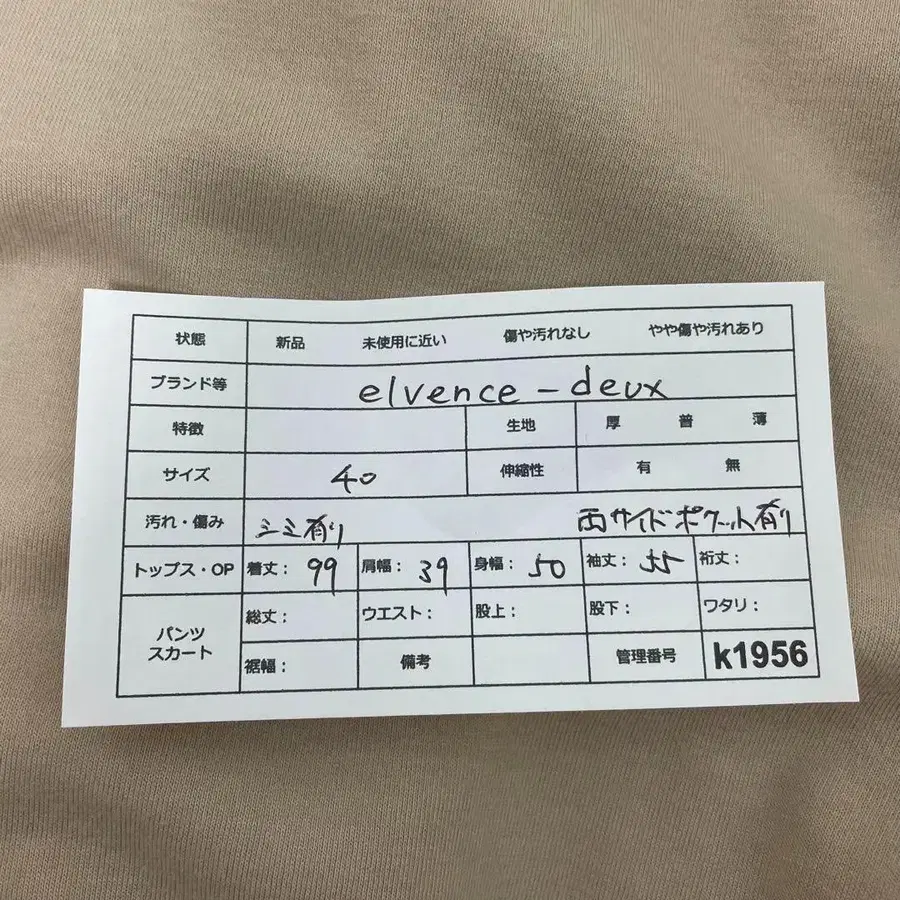 状態 新品 未使用に近い 傷や汚れなし やや傷や汚れあり
ブランド等 elvence-deux
特徴 生地 厚 普 薄
サイズ 40 伸縮性 有 無
汚れ・傷み シミ有り 両サイドポケット有り
トップス・OP 着丈: 99 肩幅: 39 身幅: 50 袖丈: 55 裄丈:
パンツ スカート 総丈: ウエスト: 股上: 股下: ワタリ:
裾幅: 備考 管理番号 k1956